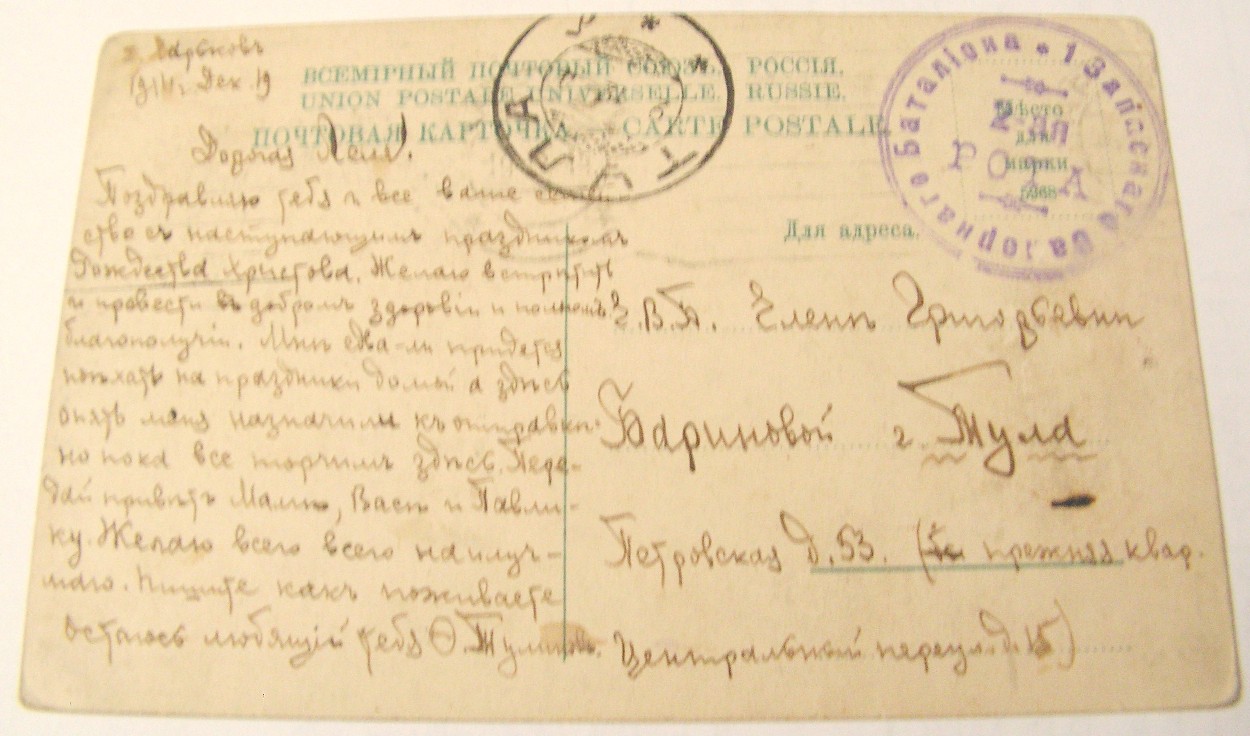 г. Харьковъ
1914 г. Дек. 19
ВСЕМІРНЫЙ ПОЧТОВЫЙ СОЮЗЪ. РОССІЯ.
UNION POSTALE UNIVERSELLE. RUSSIE.
ПОЧТОВАЯ КАРТОЧКА. CARTE POSTALE.
Дорогая Леля.
Поздравляю тебя и все ваше семей-
ство съ наступающимъ праздникомъ
Рождества Христова. Желаю встрѣтить
и провести въ добромъ здоровіи и полномъ
благополучіи. Мнѣ едва-ли придется
поѣхать на праздники домой а здѣсь
опять меня назначили къ отправкѣ
но пока все торчимъ здѣсь. Пере-
дай привѣтъ Мамѣ, Васѣ и Павли-
ку. Желаю всего всего наилуч-
шаго. Пишите какъ поживаете
Остаюсь любящій тебя Ѳ.
1 Запаснаго Батальона
РОТА
Мѣсто
для
марки
Для адреса.
Е.В.Б. Еленѣ Григорьевнѣ
Бариновой г. Тула
Петровская д. 53. (прежняя квар.
Центральный переул. д. 15)